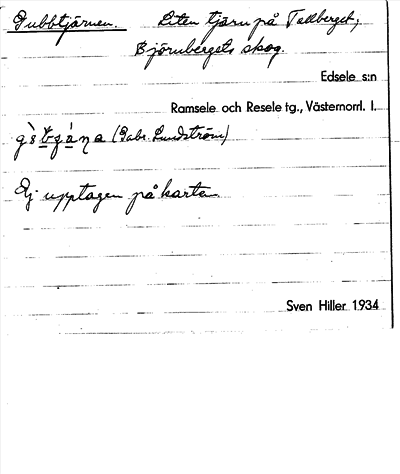 Gubbtjärnen. Liten tjärn på Tallberget,
Björnbergets skog.
Edsele s:n
Ramsele och Resele tg., Västernorrl. l.
(Gabr. Lundström)
Ej upptagen på karta
Sven Hiller 1934